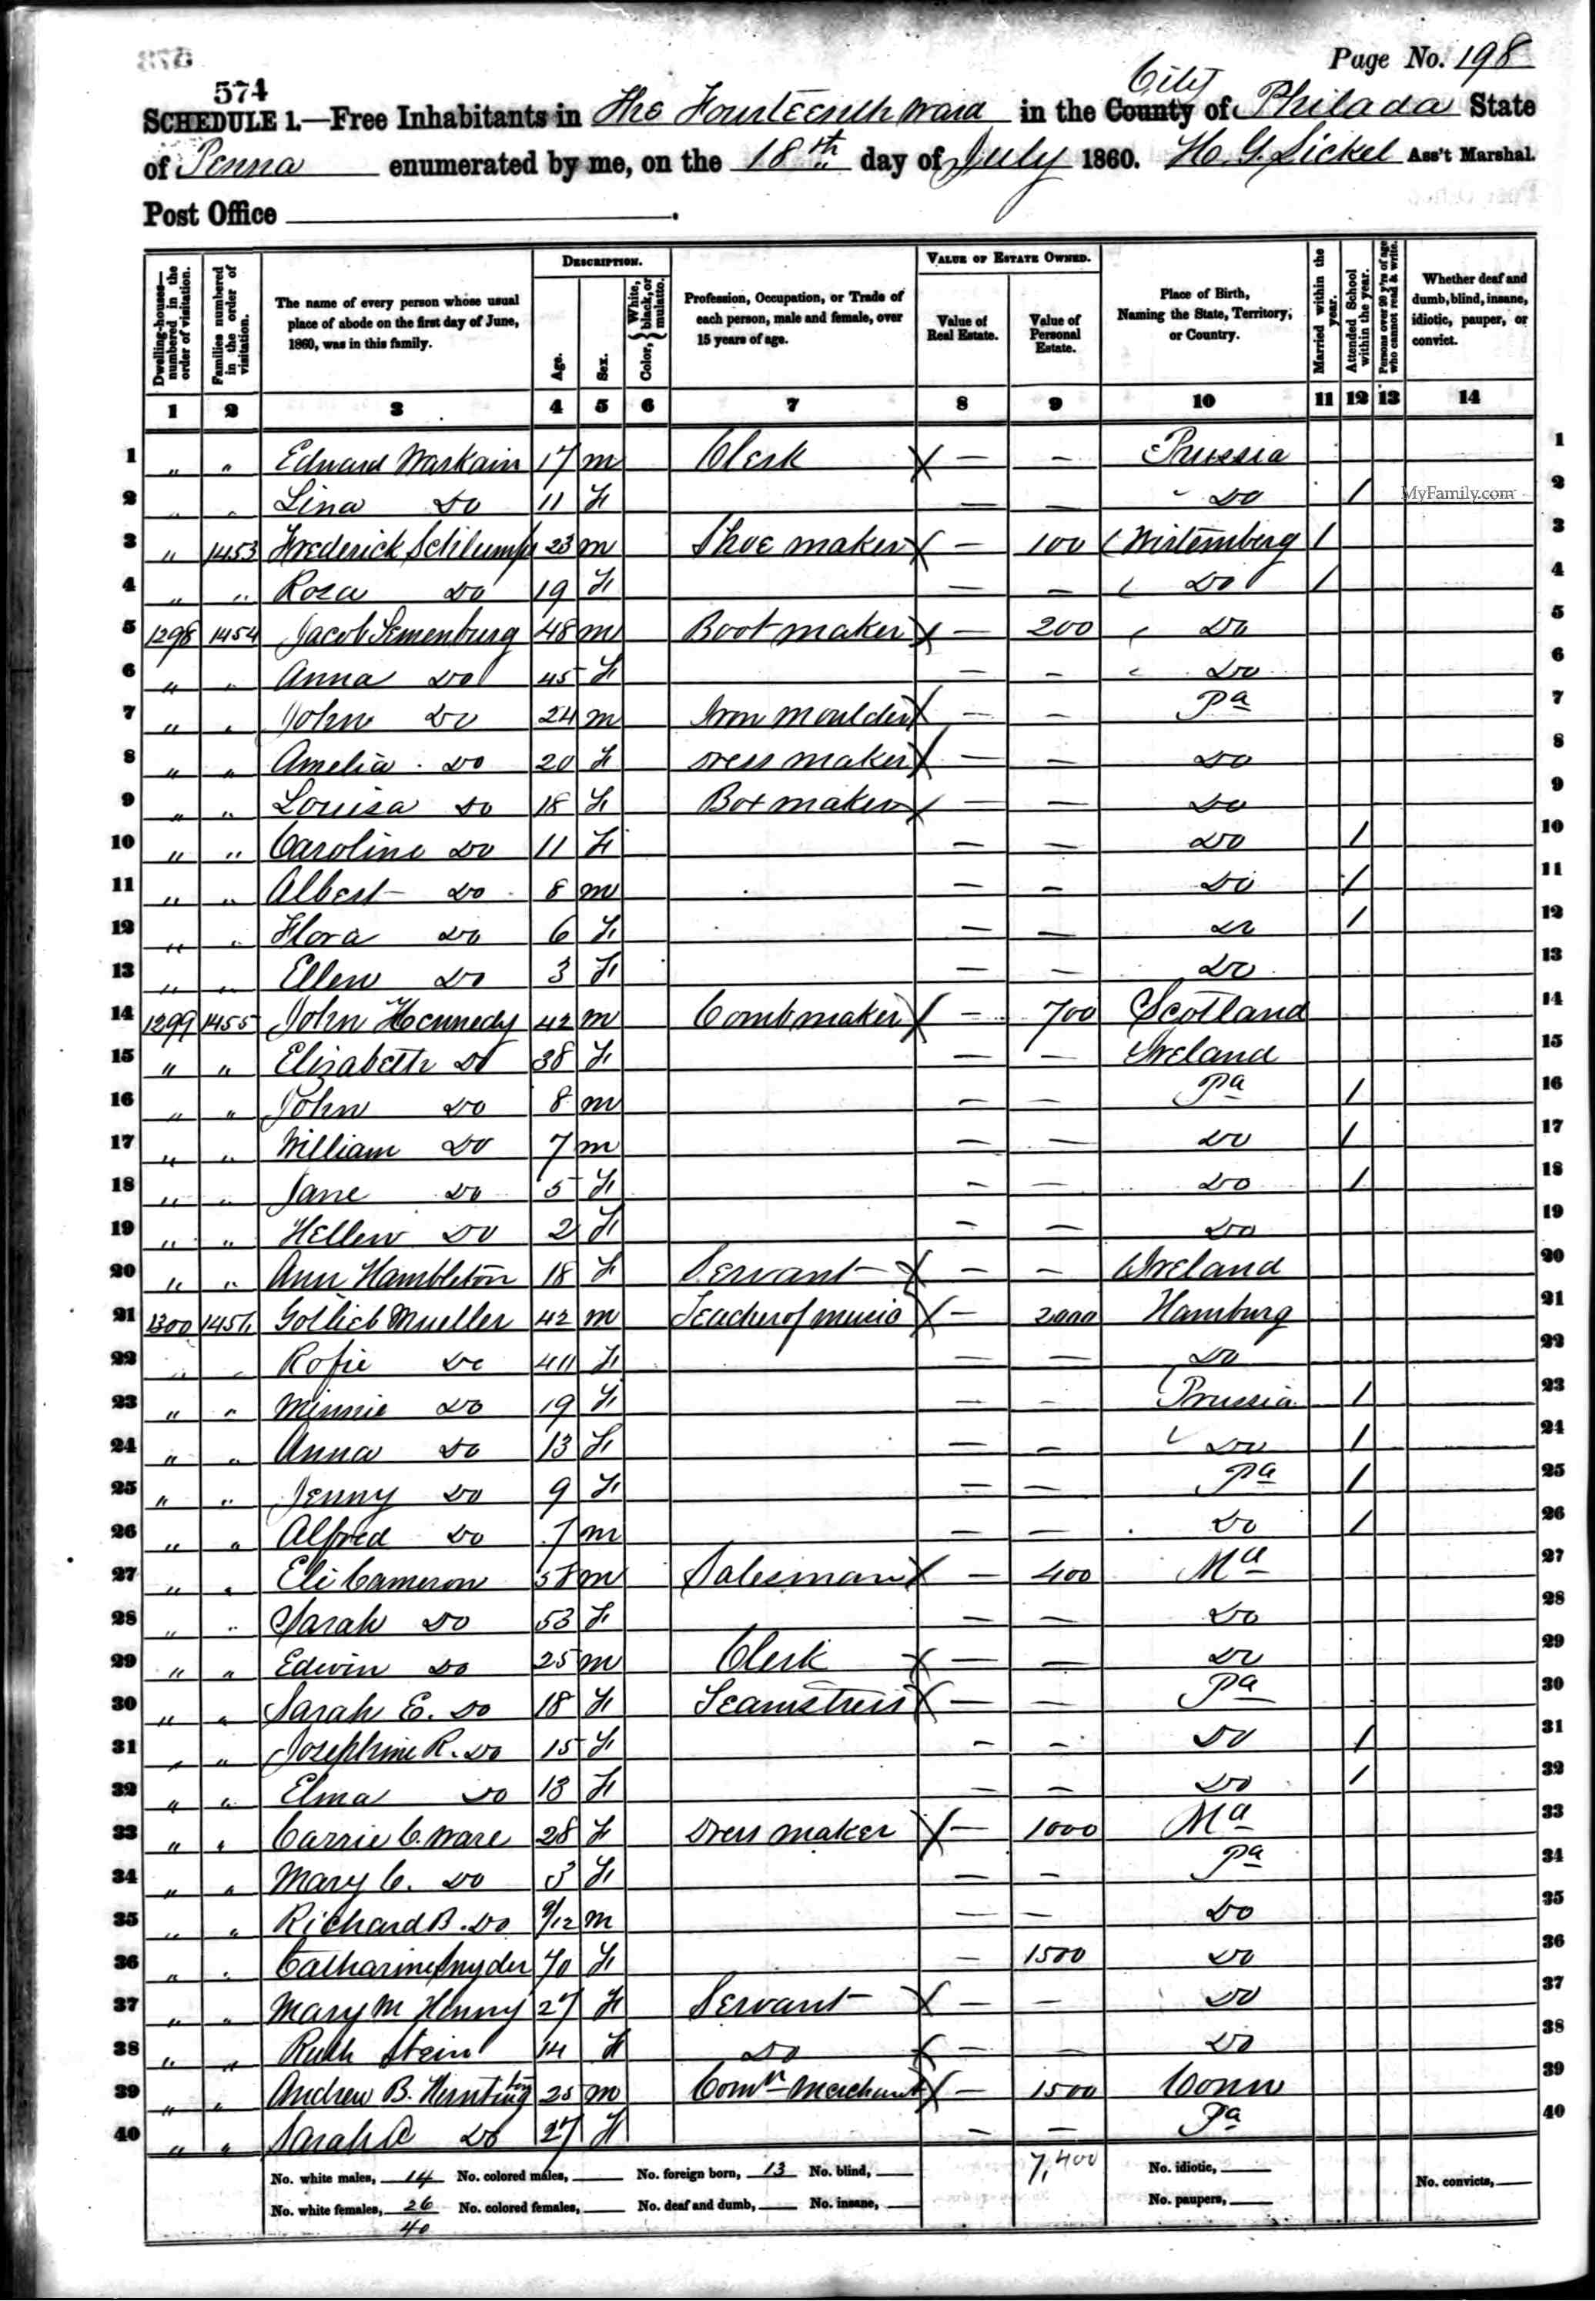 Page No. 198
574
City
SCHEDULE 1.—Free Inhabitants in The Fourteenth Ward in the County of Philada State
of Penna enumerated by me, on the 18th day of July 1860. H. G. Sickel Ass't Marshal.
Post Office
Dwelling-houses—numbered in the order of visitation. Families numbered in the order of visitation. The name of every person whose usual place of abode on the first day of June, 1860, was in this family. DESCRIPTION. Age. Sex. Color, White, black, or mulatto. Profession, Occupation, or Trade of each person, male and female, over 15 years of age. VALUE OF ESTATE OWNED. Value of Real Estate. Value of Personal Estate. Place of Birth, Naming the State, Territory, or Country. Married within the year. Attended School within the year. Persons over 20 y'rs of age who cannot read & write. Whether deaf and dumb, blind, insane, idiotic, pauper, or convict.
1 2 3 4 5 6 7 8 9 10 11 12 13 14
1 " " Edward Warkain 17 m Clerk X — — Prussia 1
2 " " Lina Do 11 F — — Do / 2
MyFamily.com
3 " 1453 Frederick Schlumpf 23 m Shoe maker X — 100 Wirtemberg / 3
4 " " Rosa Do 19 F — — Do / 4
5 1298 1454 Jacob Semenburg 48 m Boot maker X — 200 Do 5
6 " " Anna Do 45 F — — Do 6
7 " " John Do 24 m Iron moulder X — — Pa 7
8 " " Amelia Do 20 F Dress maker X — — Do 8
9 " " Louisa Do 18 F Box maker X — — Do 9
10 " " Caroline Do 11 F — — Do / 10
11 " " Albert Do 8 m — — Do / 11
12 " " Flora Do 6 F — — Do / 12
13 " " Ellen Do 3 F — — Do 13
14 1299 1455 John Kennedy 42 m Comb maker X — 700 Scotland 14
15 " " Elizabeth Do 38 F — — Ireland 15
16 " " John Do 8 m — — Pa / 16
17 " " William Do 7 m — — Do / 17
18 " " Jane Do 5 F — — Do / 18
19 " " Hellen Do 2 F — — Do 19
20 " " Ann Hambleton 18 F Servant X — — Ireland 20
21 1300 1456 Gotlieb Mueller 42 m Teacher of music X — 2000 Hamburg 21
22 " " Rofie Do 40 F — — Do 22
23 " " Minnie Do 19 F — — Prussia / 23
24 " " Anna Do 13 F — — Do / 24
25 " " Jenny Do 9 F — — Pa / 25
26 " " Alfred Do 7 m — — Do / 26
27 " " Eli Cameron 58 m Salesman X — 400 Md 27
28 " " Sarah Do 53 F — — Do 28
29 " " Edwin Do 25 m Clerk X — — Do 29
30 " " Sarah E. Do 18 F Seamstress X — — Pa 30
31 " " Josephine R. Do 15 F — — Do / 31
32 " " Elma Do 13 F — — Do / 32
33 " " Carrie C. Ware 28 F Dress maker X — 1000 Md 33
34 " " Mary C. Do 3 F — — Pa 34
35 " " Richard B. Do 9/12 m — — Do 35
36 " " Catharine Snyder 70 F — 1500 Do 36
37 " " Mary M Henny 27 F Servant X — — Do 37
38 " " Ruth Stein 14 F Do X — — Do 38
39 " " Andrew B. Huntington 25 m Comn Merchant X — 1500 Conn 39
40 " " Sarah A Do 27 F — — Pa 40
No. white males, 14 No. colored males, No. foreign born, 13 No. blind, 7,400 No. idiotic,
No. white females, 26 No. colored females, No. deaf and dumb, No. insane, No. paupers, No. convicts,
40